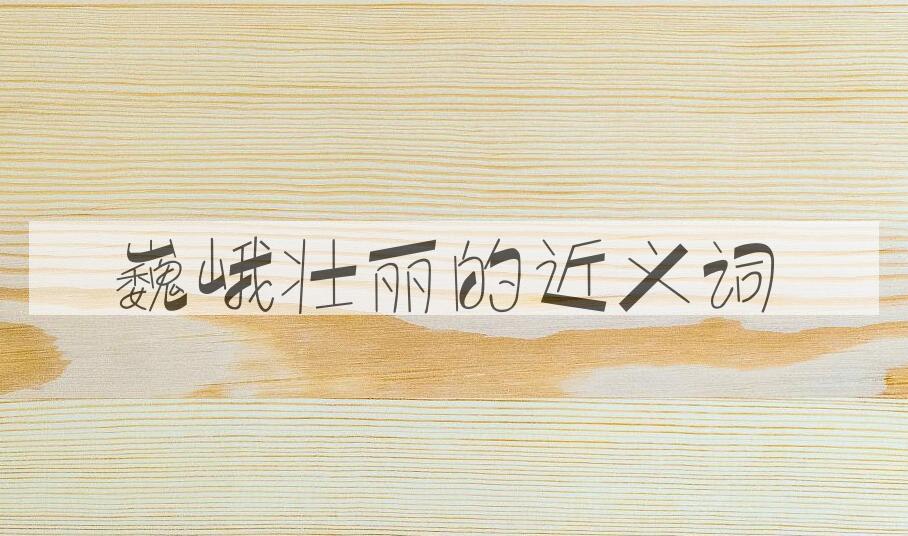 巍峨壮丽的近义词